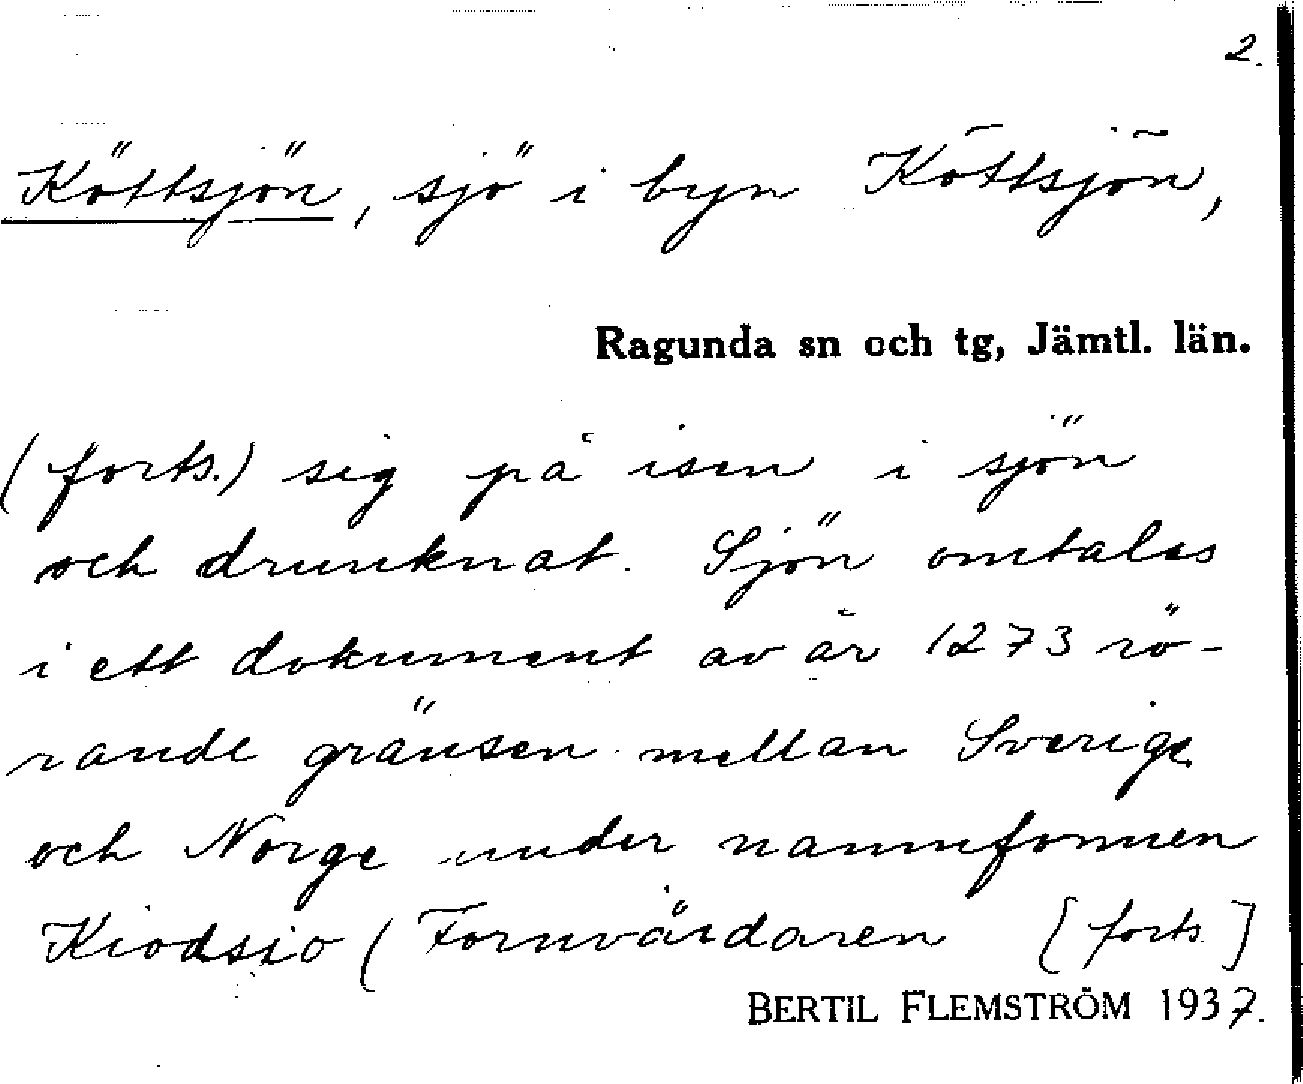 2.
Köttsjön, sjö i byn Köttsjön,
Ragunda sn och tg, Jämtl. län.
(forts.) sig på isen i sjön
och drunknat. Sjön omtales
i ett dokument av år 1273 rö-
rande gränsen mellan Sverige
och Norge under namnformen
Kiodsio (Fornvårdaren [forts]
BERTIL FLEMSTRÖM 1937.